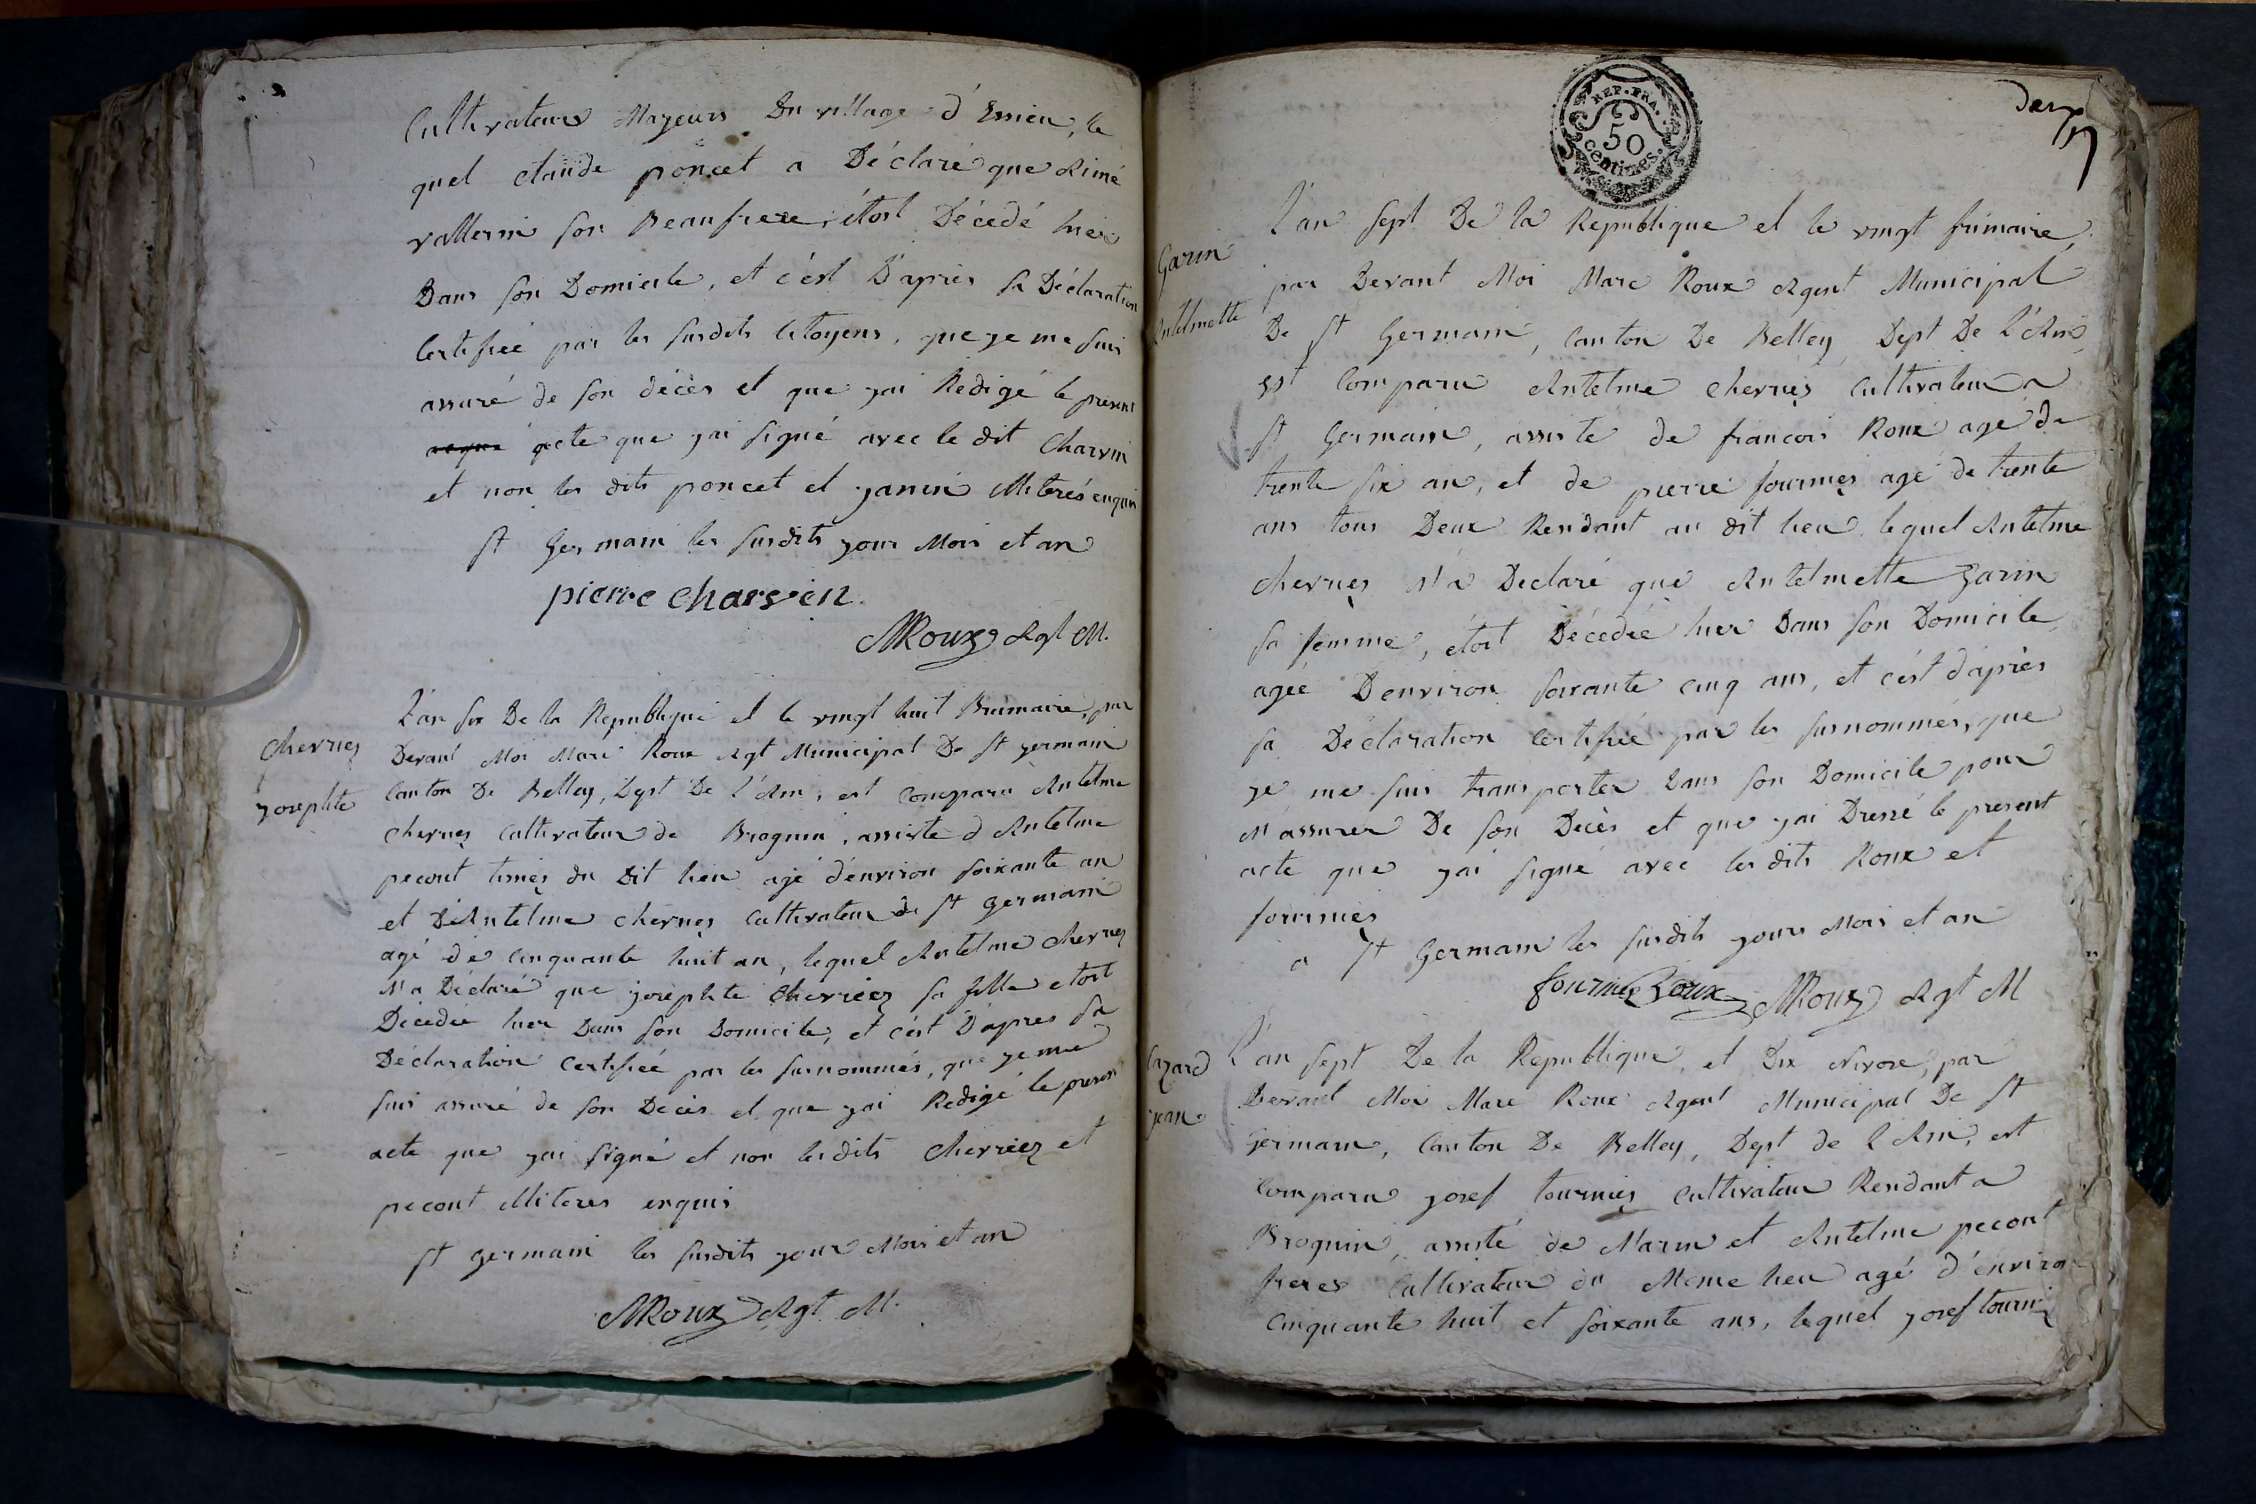 Cultivateurs Majeurs Du village d'Essieu, le
quel Claude poncet a Déclaré que Aimé
vallerin son Beaufrere, étoit Décedé hier
Dans son Domicile, et c'est D'après sa Déclaration
Certifiée par les susdits Citoyens, que je me suis
assuré de son décès et que j'ai Redigé le present
acte que j'ai signé avec le dit Charvin
et non les dits poncet et janin illiterés enquis
st Germain les susdits jour Mois et an
pierre Charvein
MRoux Agt M.
Chervez
josephte
L'an six De la Republique et le vingt huit Brumaire, par
Devant Moi Marc Roux Agt Municipal De st germain
Canton De Belley, Dept De l'Ain, est comparu Antelme
Chervez Cultivateur de Brognin, assisté d'Antelme
pecont du Dit lieu agé d'environ soixante an
et D'Antelme Chervez Cultivateur de st germain
agé de Cinquante huit an, lequel Antelme Chervez
M'a Déclaré que josephte Cherviez sa fille etoit
Décedée hier Dans son Domicile, et c'est D'apres sa
Déclaration Certifiée par les surnommés, que je me
suis assuré de son Décès et que j'ai Redigé le present
acte que j'ai signé et non les dits Cherviez et
pecont illiteres enquis
st germain les susdits jour Mois et an
MRoux Agt M.
REP. FRA.
50
centimes.
Garin
Antelmette
L'an sept De la Republique et le vingt frimaire,
par Devant Moi Marc Roux Agent Municipal
De st Germain, Canton De Belley, Dept De l'Ain,
est Comparu Antelme Chervez Cultivateur a
st Germain, assisté de francois Roux agé de
trente six an, et de pierre fournier agé de trente
ans tous Deux Rendant au dit lieu, lequel Antelme
Chervez M'a Declaré que Antelmette Garin
sa femme, étoit Décedée hier Dans son Domicile,
agée D'environ soixante cinq ans, et c'est d'après
sa Déclaration Certifiée par les surnommés, que
je me suis transporter Dans son Domicile pour
M'assurer De son Décès et que j'ai Dressé le present
acte que j'ai signé avec les dits Roux et
fournier
a st Germain les susdits jours Mois et an
fournier Roux MRoux Agt M
Cazard
jean
L'an sept De la Republique, et Dix Nivose, par
Devant Moi Marc Roux Agent Municipal De st
germain, Canton De Belley, Dept de l'Ain, est
Comparu josef tournier Cultivateur Rendant a
Brognin, assisté de Marin et Antelme pecont
freres Cultivateur du Meme lieu agé d'environ
Cinquante huit et soixante ans, lequel josef tournier